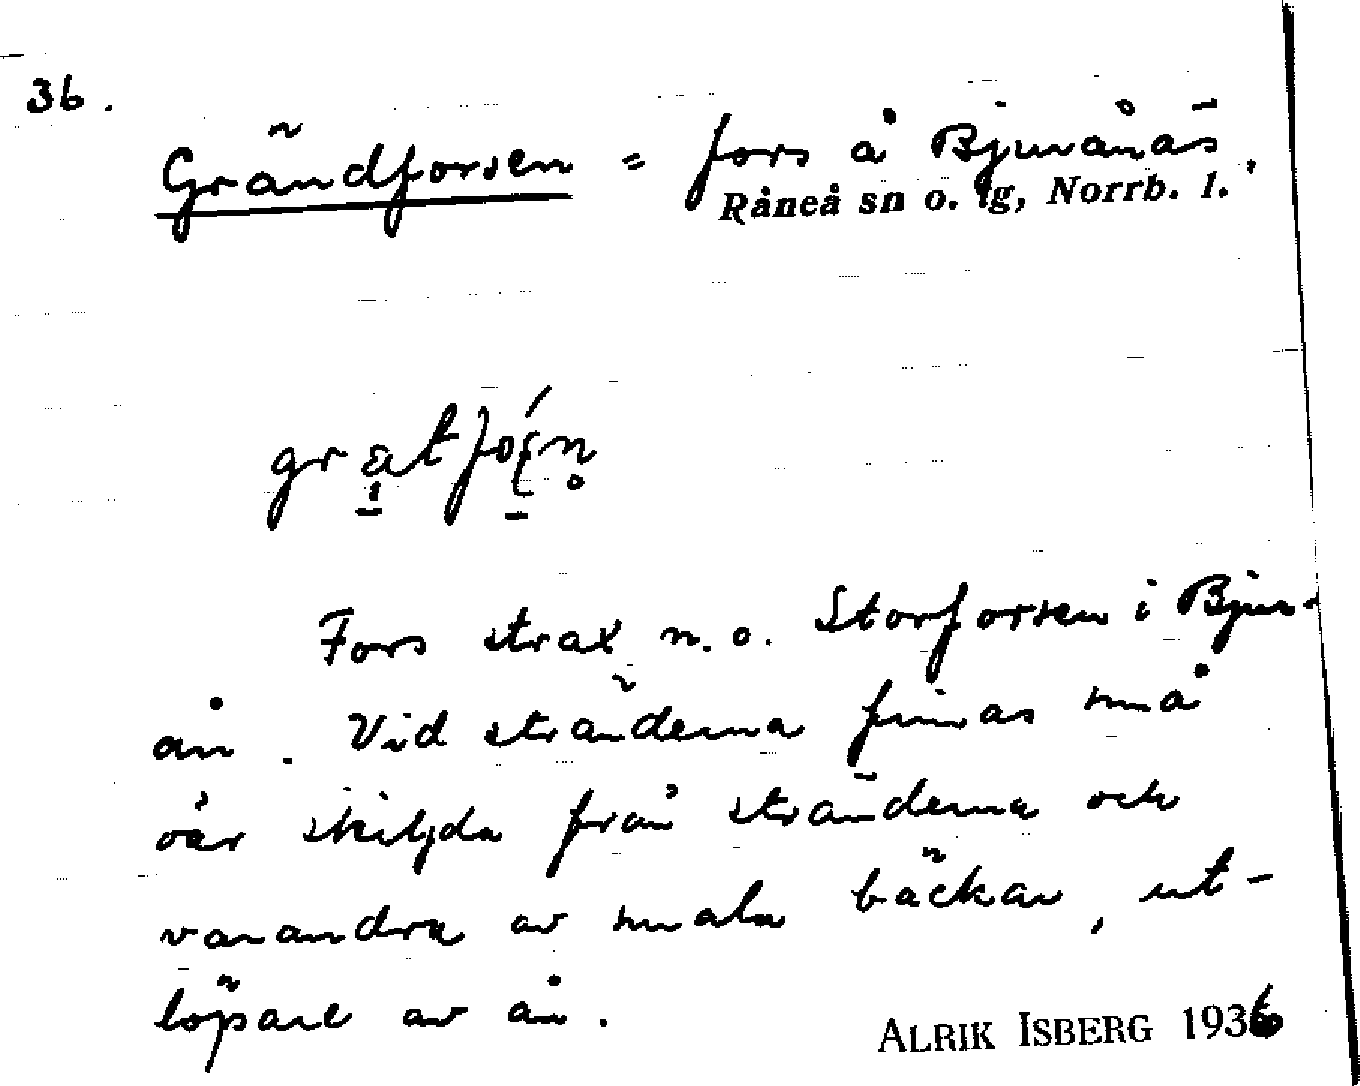 36.
Grändforsen = fors å Bjurånäs,
Råneå sn o. lg, Norrb. l.
Fors strax n.o. Storforsen i Bjur-
ån. Vid stränderna finnas små
öar skiljda från stränderna och
varandra av smala bäckar, ut-
löpare av ån.
ALRIK ISBERG 1936